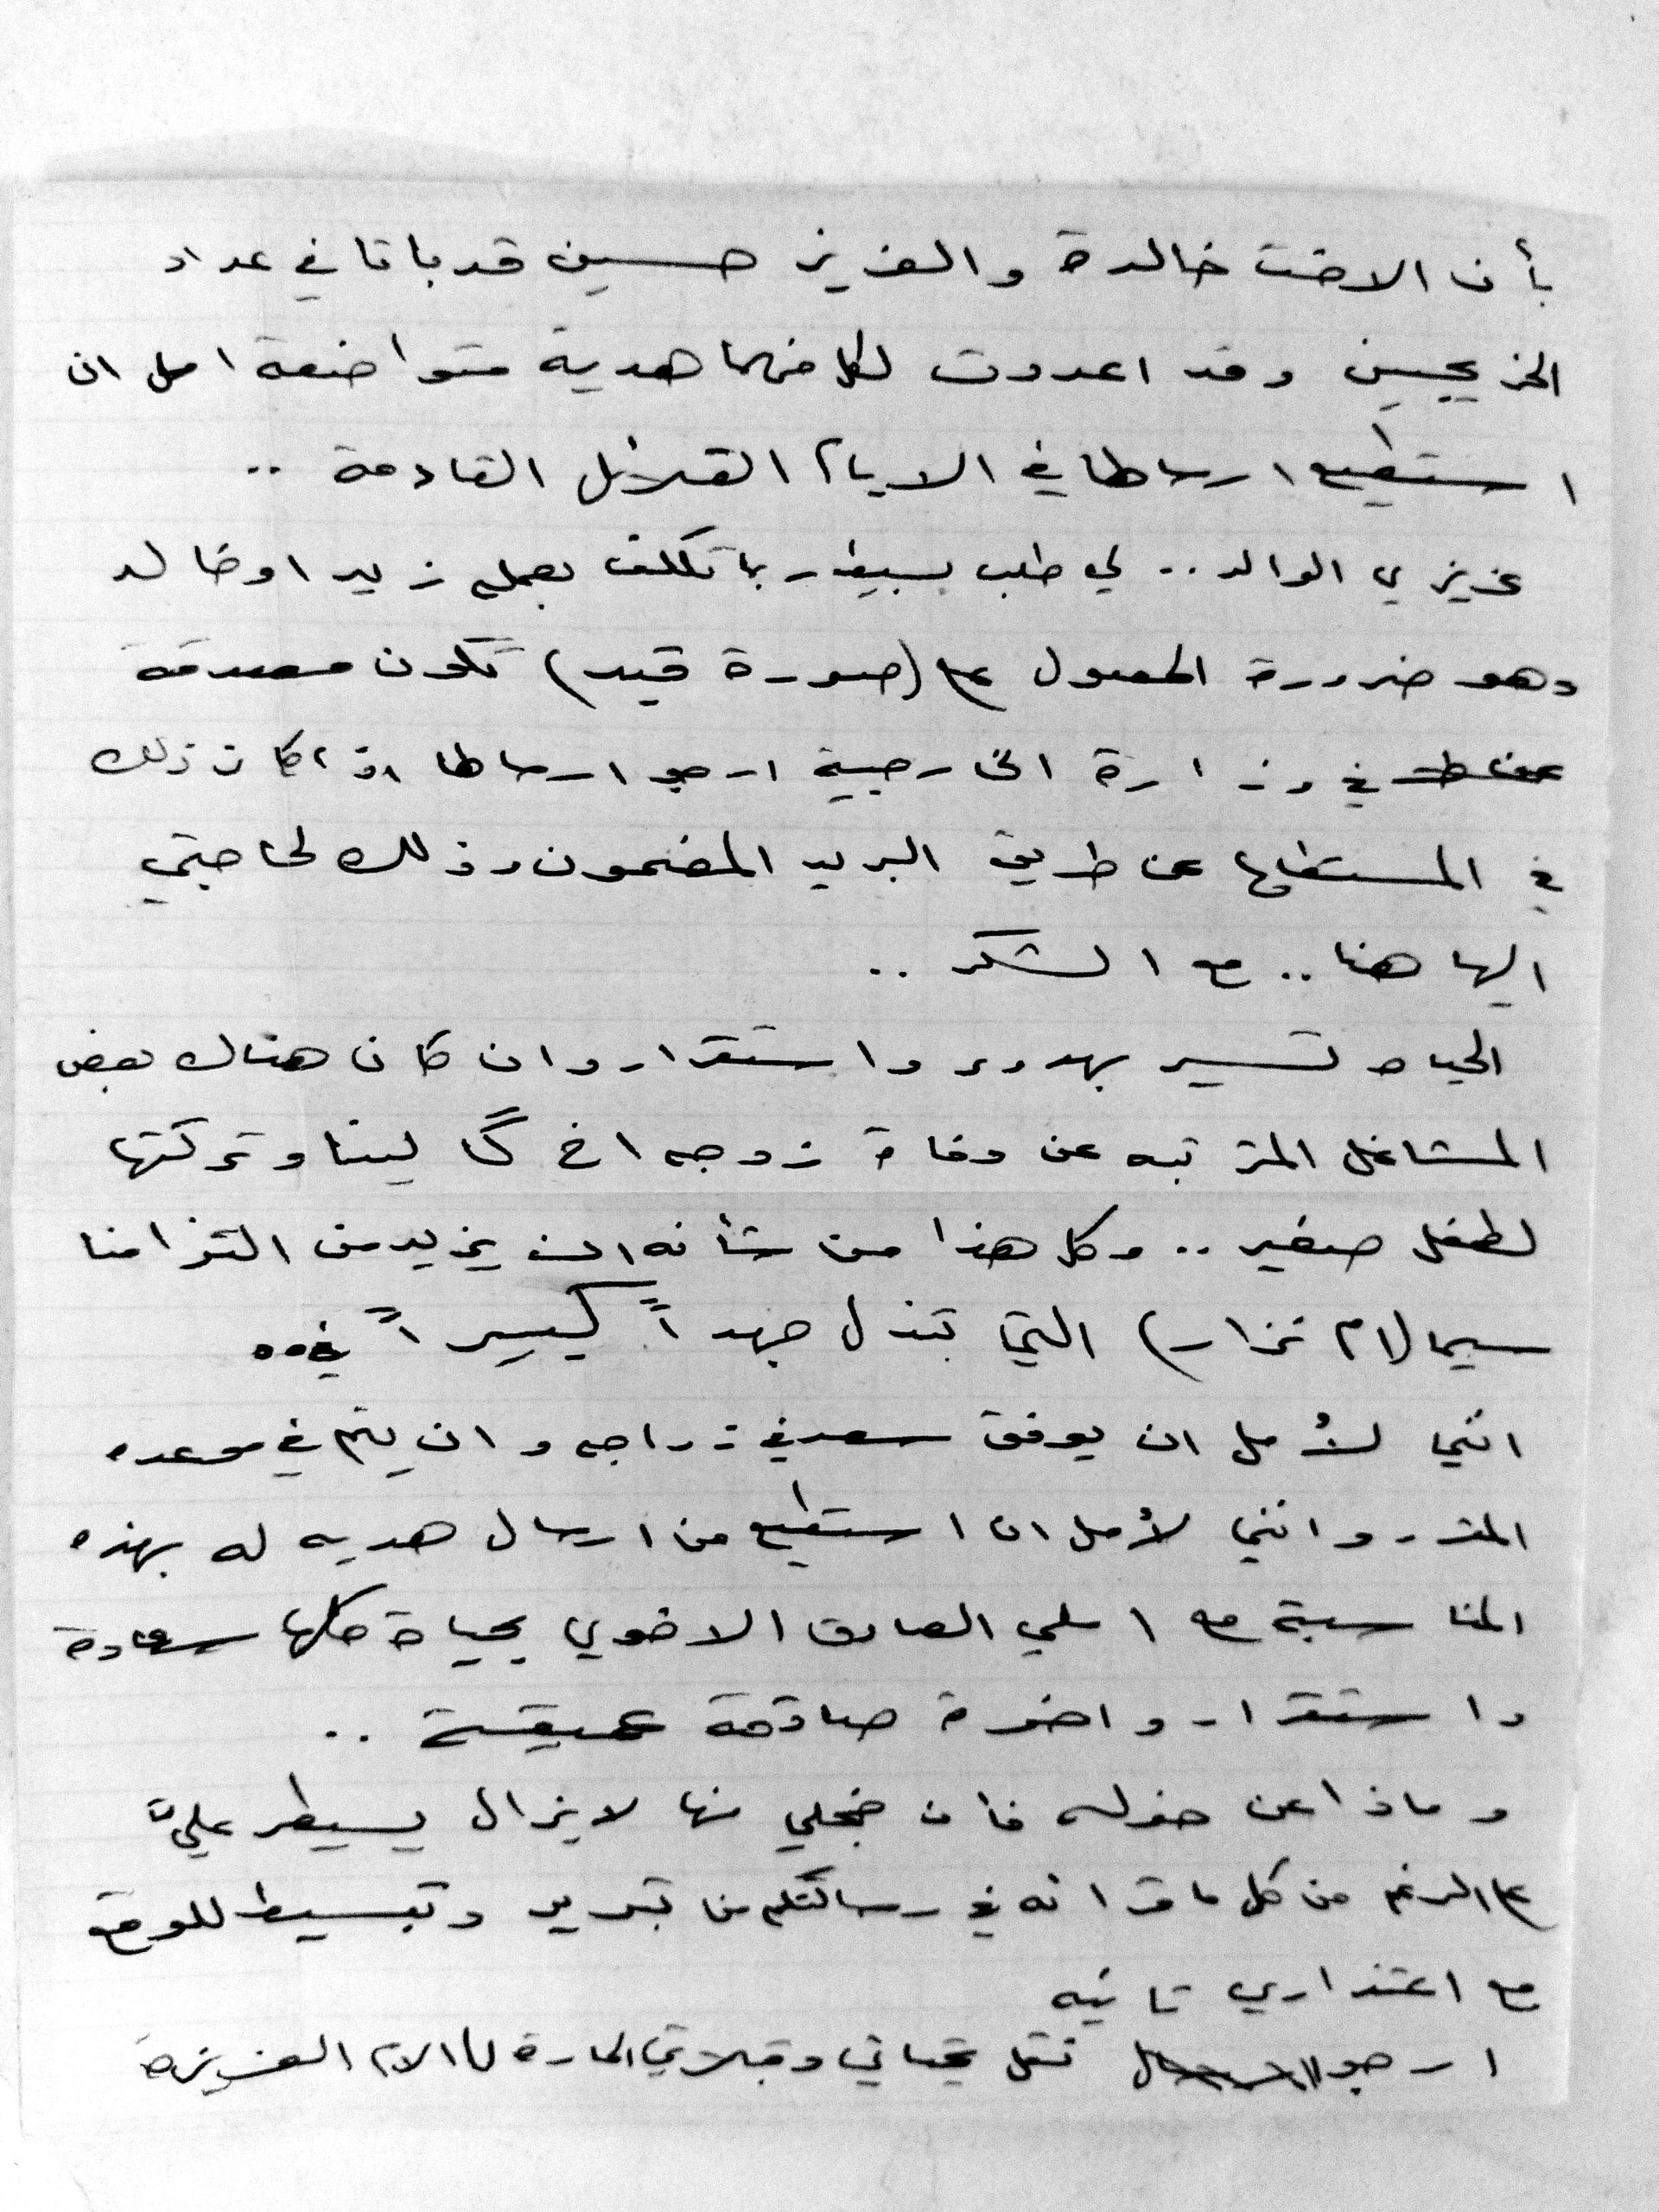 بأن الاخت خالدة والعزيز حسين قد باتا في عداد
الخريجين وقد اعددت لكل منهما هدية متواضعة امل ان
استطيع ارسالها في الايام القلائل القادمة ..
عزيزي الوالد .. لي طلب بسيط ربما تكلف بعمله زيد او خالد
وهو ضرورة الحصول على (صورة قيد) تكون مصدقة
فقط في وزارة الخارجية ارجو ارسالها اذا كان ذلك
في المستطاع عن طريق البريد المضمون وذلك لحاجتي
اليها هنا .. مع الشكر ..
الحياه تسير بهدوء واستقرار وان كان هناك بعض
المشاغل المترتبه عن وفاة زوجه اخ گالينا وتركتها
لطفل صغير .. وكل هذا من شأنه ان يزيد من التزامنا
سيما (ام نزار) التي تبذل جهداً كبيراً في ..
انني لأمل ان يوفق سعد في زواجه وان يتم في موعده
المقرر وانني لأمل ان استطيع من ارسال هديه له بهذه
المناسبة مع املي الصادق الاخوي بحياة كلها سعادة
واستقرار واخوة صادقة عميقة ..
وماذا عن خوله فأن خجلي منها لا يزال يسيطر عليّ
على الرغم من كل ما قرأته في رسالتكم من تبرير وتبسيط للموقع
مع اعتذاري ثانيه
ارجو نقل تحياتي وقبلاتي الحارة للام العزيزة